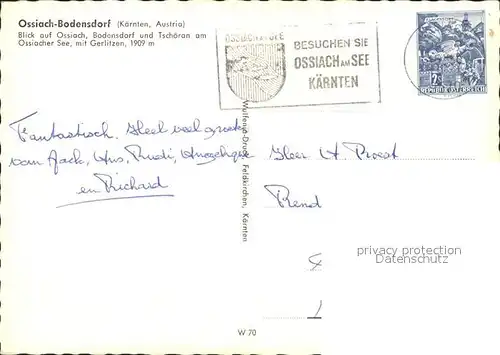 Ossiach-Bodensdorf (Kärnten, Austria)
Blick auf Ossiach, Bodensdorf und Tschöran am
Ossiacher See, mit Gerlitzen, 1909 m
OSSIACH AM SEE
BESUCHEN SIE
OSSIACH AM SEE
KÄRNTEN
REPUBLIK ÖSTERREICH
Fantastisch. Heel veel groeten
van Jack, Ans, Rudi, Angelique
en Richard
Wulfenia-Druck, Feldkirchen, Kärnten
Heer A Proost
Rend
privacy protection
Daten sind
W 70